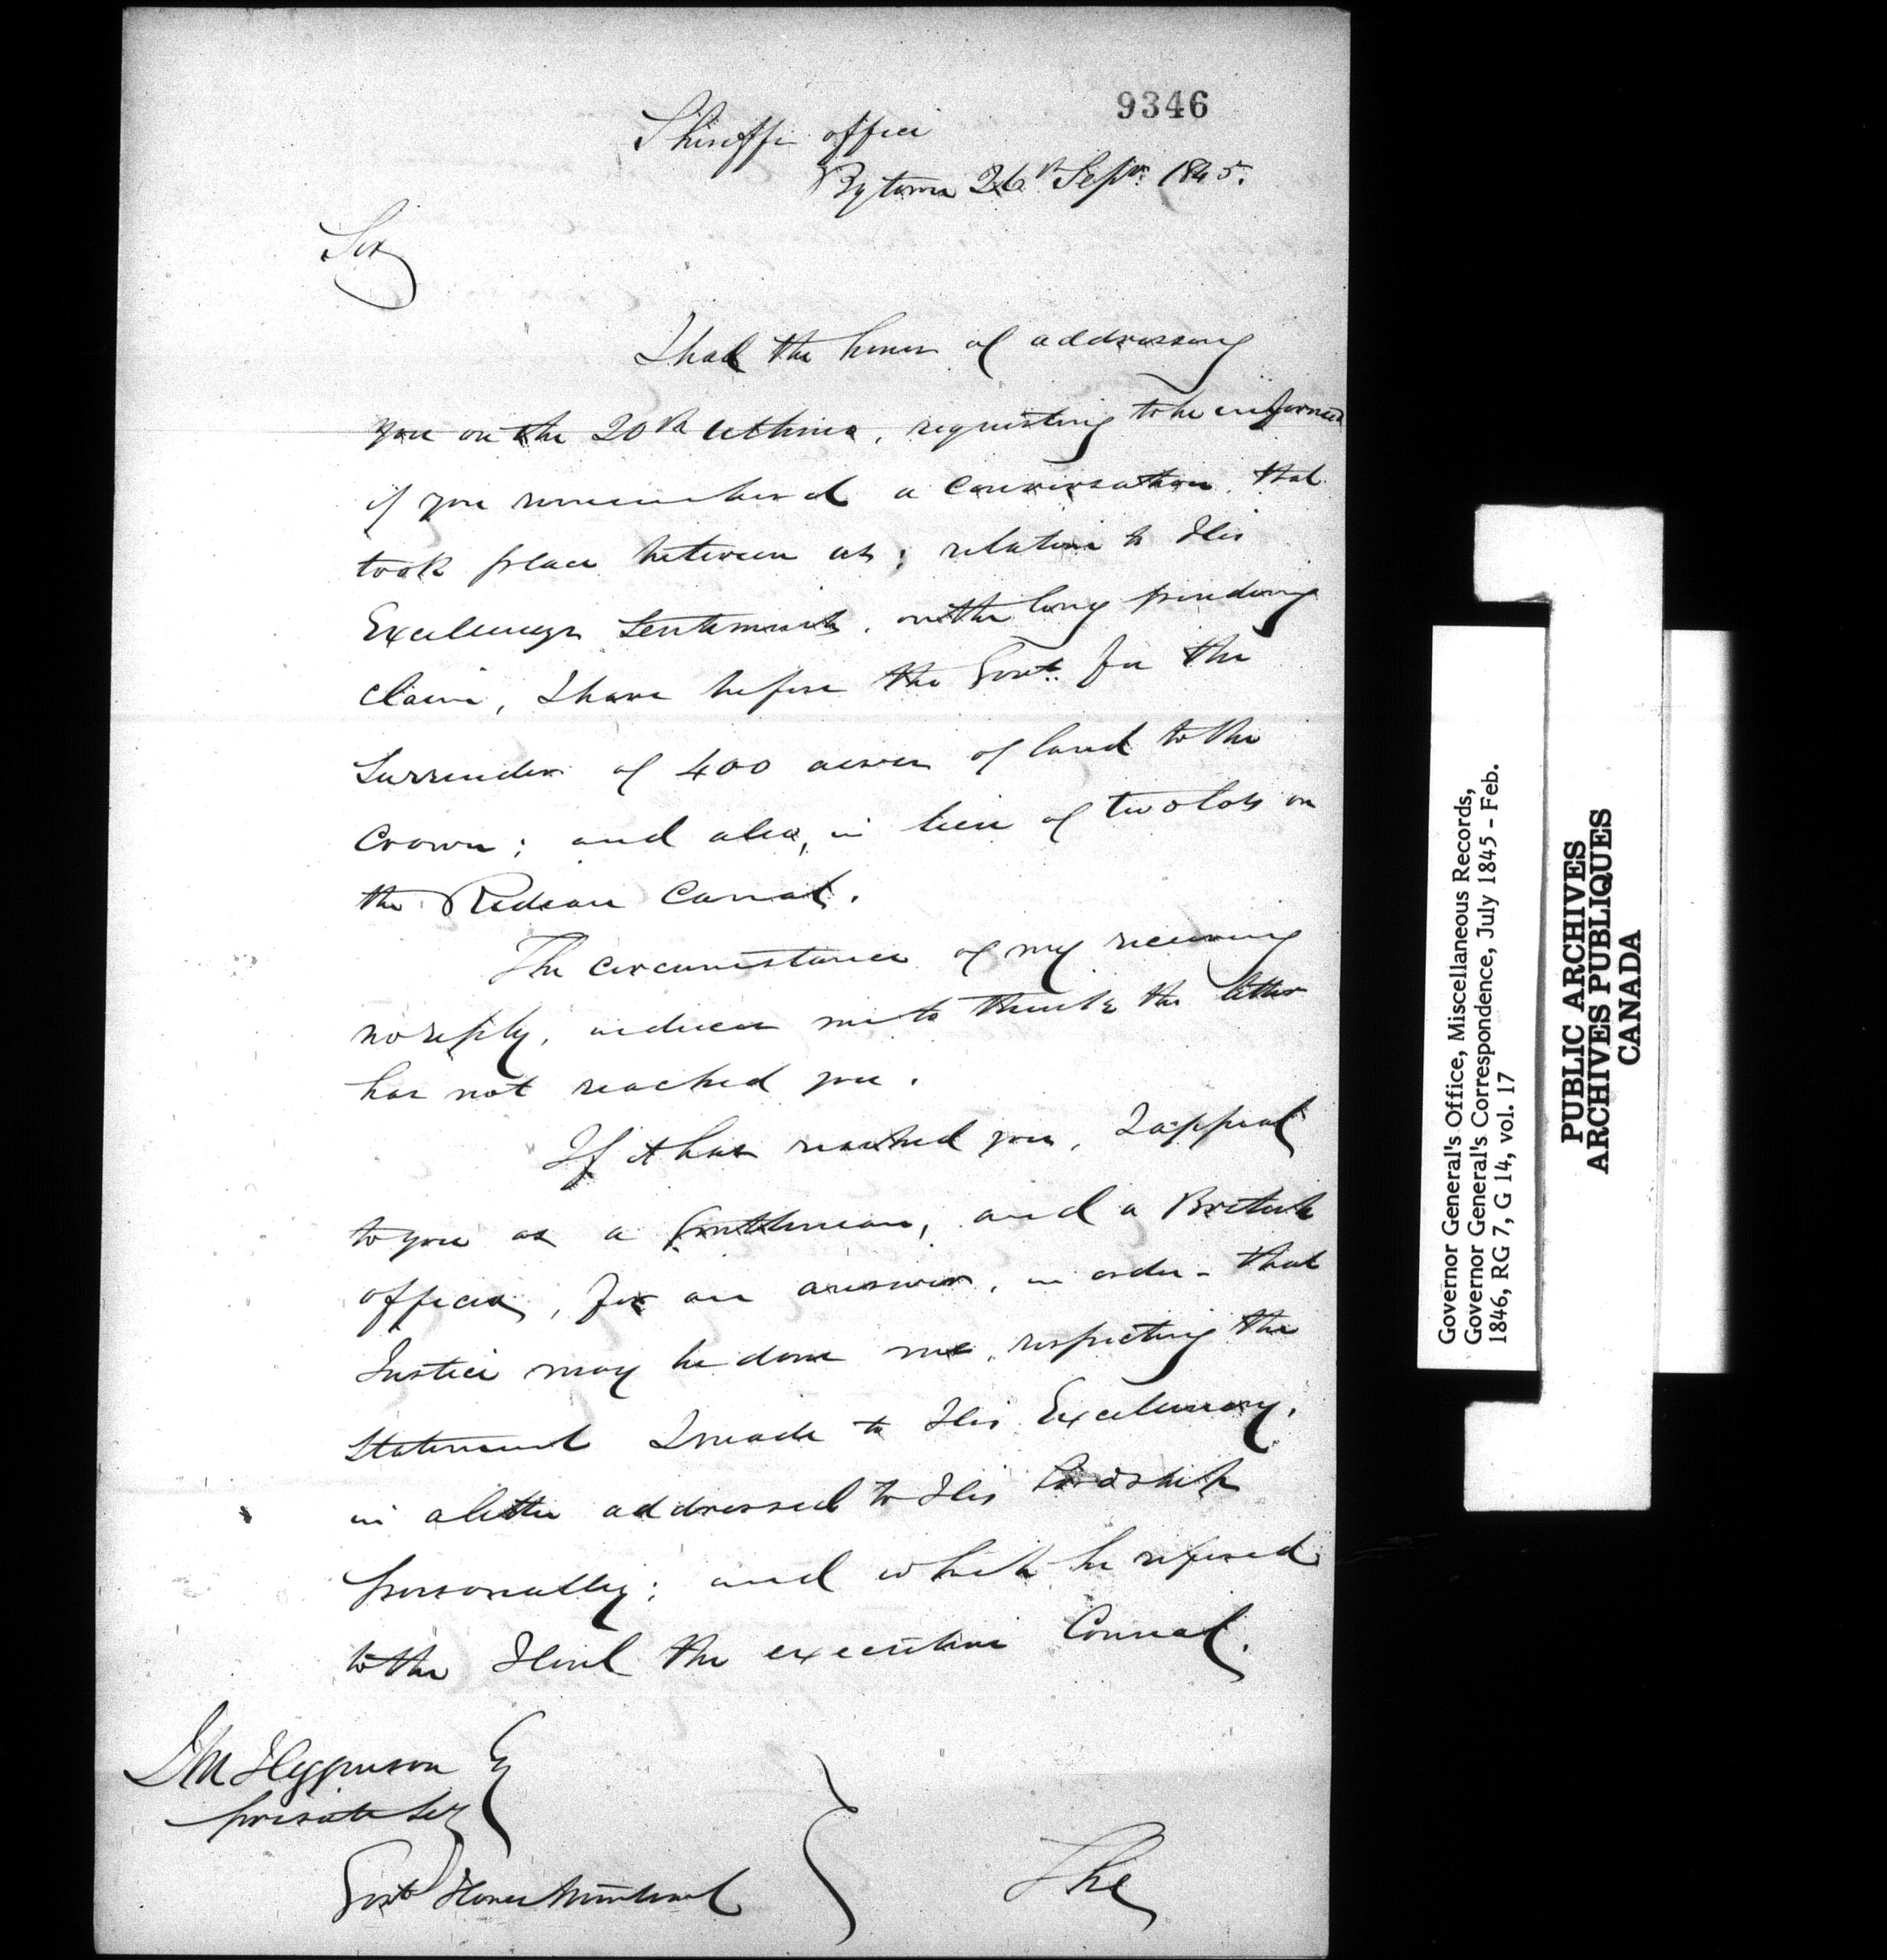 9346
Sheriffs office
Bytown 26th Sepr. 1845.
Sir
I had the honor of addressing
you on the 20th Ultimo, requesting to be informed
if you remembered a conversation that
took place between us; relative to His
Excellencys Sentiments, on the long pending
claim, I have before the Govt. for the
Surrender of 400 acres of land to the
Crown; and also, in lieu of two lots on
the Rideau Canal.
The circumstance of my receiving
no reply, induces me to think the letter
has not reached you.
If it has reached you, I appeal
to you as a Gentleman, and a British
officer, for an answer, in order - that
Justice may be done me, respecting the
Statement I made to His Excellency,
in a letter addressed to His Lordship
personally; and which he refered
to the Honl the executive Council.
J M Higginson Esq
private Secy
Govt House Montreal
The
Governor General's Office, Miscellaneous Records,
Governor General's Correspondence, July 1845 - Feb.
1846, RG 7, G 14, vol. 17
PUBLIC ARCHIVES
ARCHIVES PUBLIQUES
CANADA